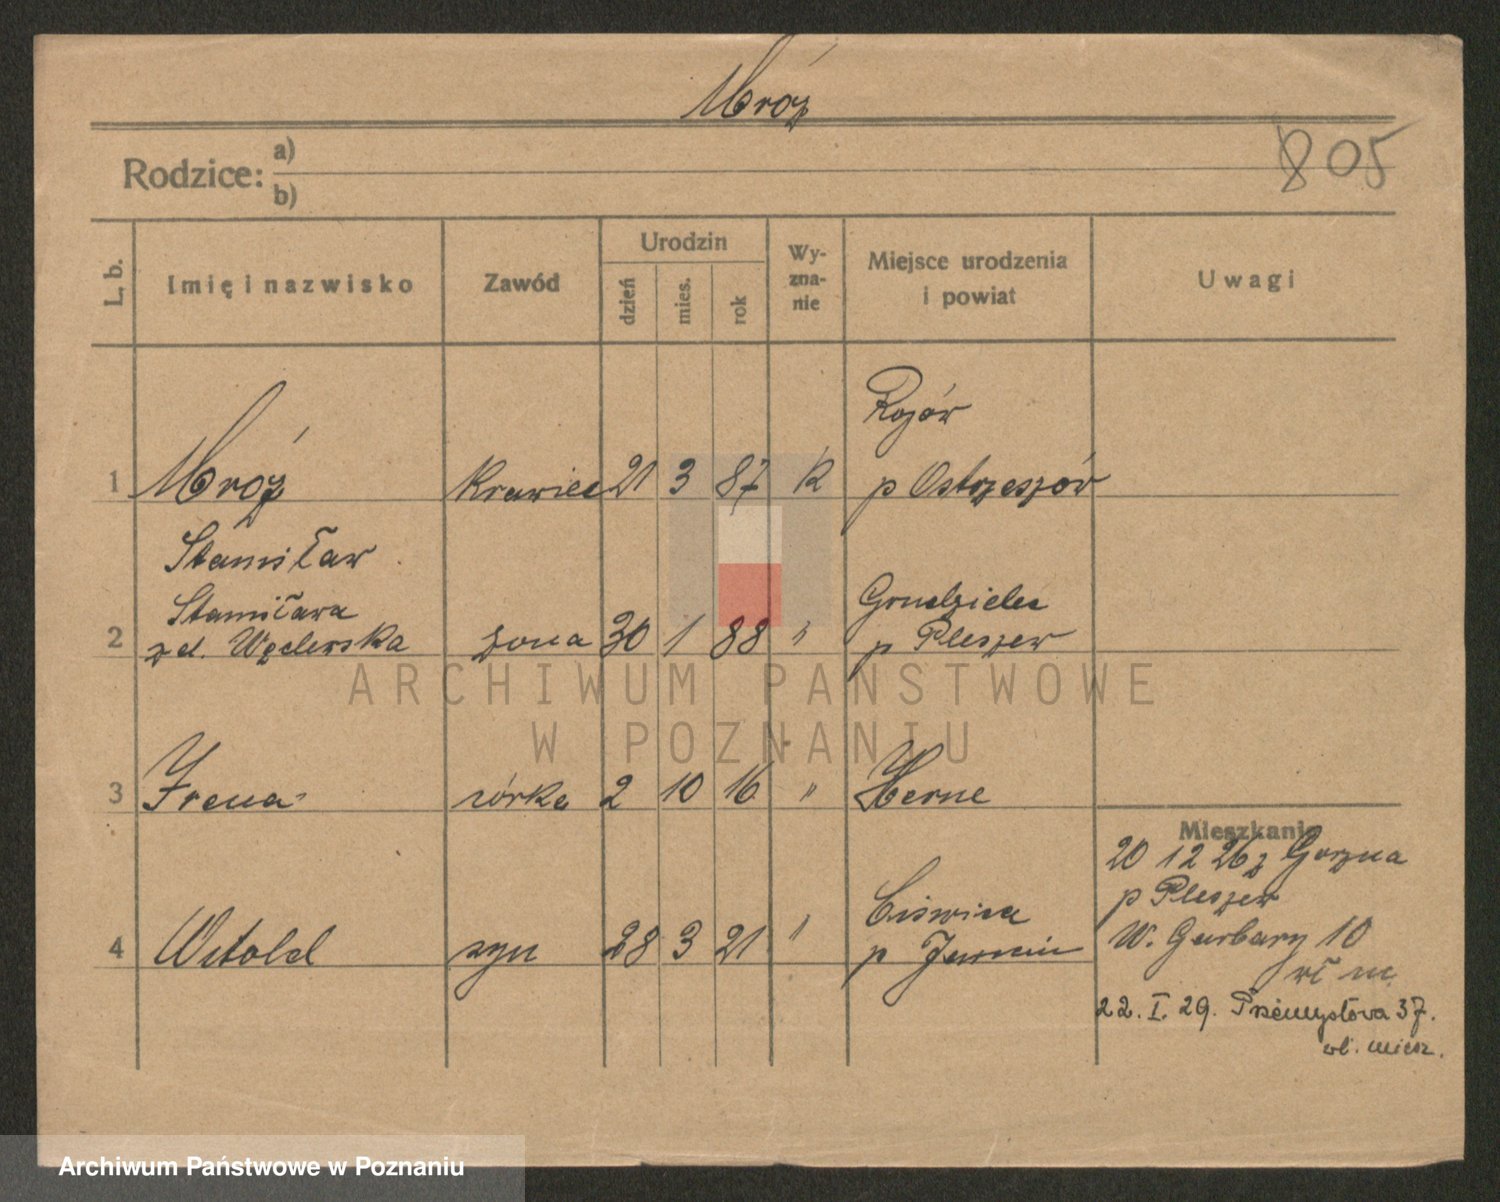 Mróz
805
Rodzice: a)
b)
L. b.
Imię i nazwisko
Zawód
Urodzin
dzień
mies.
rok
Wy-
zna-
nie
Miejsce urodzenia
i powiat
Uwagi
1 Mróz Krawiec 21 3 87 K Rojów
p Ostrzeszów
Stanisław
Stanisława Grudzielec
2 zd. Węclewska żona 30 1 88 " p Pleszew
ARCHIWUM PAŃSTWOWE
W POZNANIU
3 Irena córka 2 10 16 " Herne
Mieszkanie
20 12 26 z Gorzna
p Pleszew
4 Witold syn 28 3 21 "
p
W. Garbary 10
wł m.
22. I. 29. Przemysłowa 37.
wł. miesz.
Archiwum Państwowe w Poznaniu